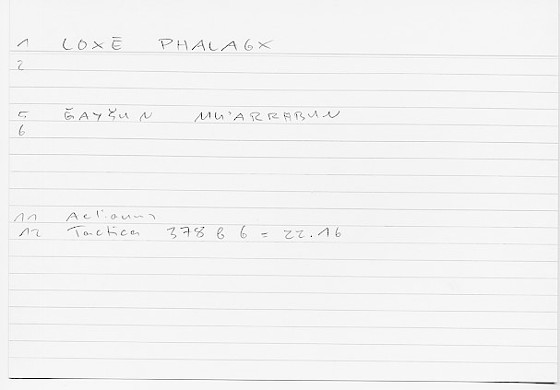 1 LOXĒ PHALAGX
2
5 ĞAYŠUN MU'ARRABUN
6
11 Aelianus
12 Tactica 378 B 6 = 22.16